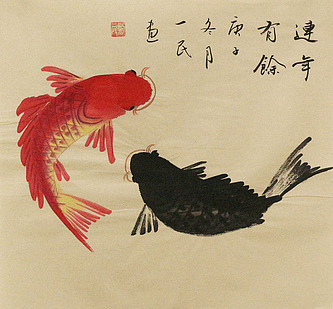 連年
有餘
庚子
冬月
一民
畫